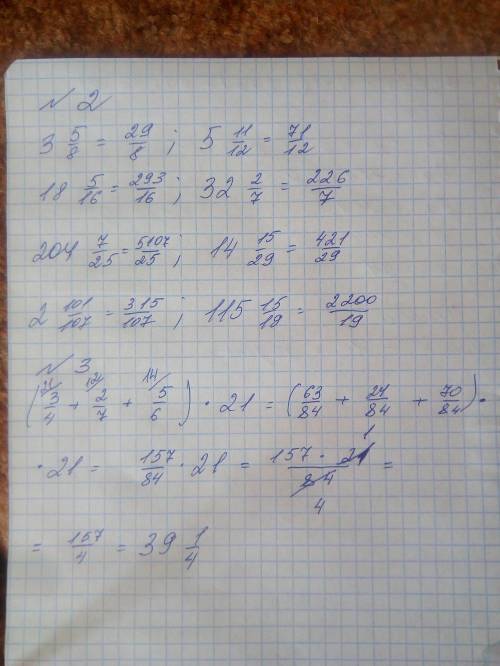 № 2
3 5/8 = 29/8 ; 5 11/12 = 71/12
18 5/16 = 293/16 ; 32 2/7 = 226/7
204 7/25 = 5107/25 ; 14 15/29 = 421/29
2 101/107 = 315/107 ; 115 15/19 = 2200/19
№ 3
(21/ 3/4 + 12/ 2/7 + 14/ 5/6) · 21 = (63/84 + 24/84 + 70/84) ·
· 21 = 157/84 · 21 = 157 · 21 1 / 84 4 =
= 157/4 = 39 1/4